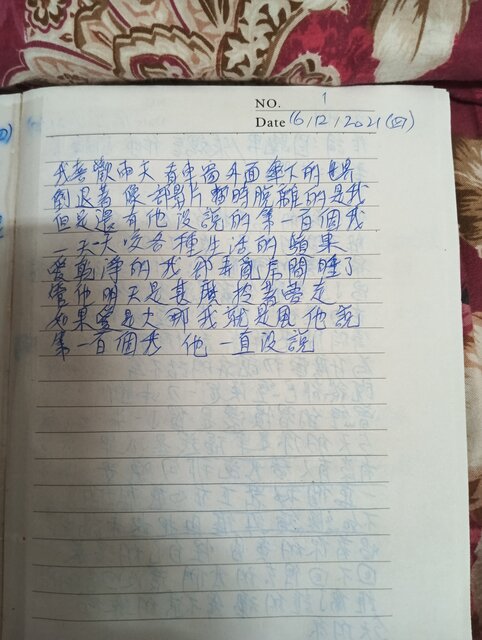 NO. 1
Date 16/12/2021 (四)
我喜歡雨天 看中窗外面傘下的世界
倒退著 像部影片 暫時脫離的是我
但是還有他沒說的第一百個我
一天一天咬各種生活的蘋果
愛乾淨的我 卻弄亂房間睡了
管他明天是甚麼 披著雲走
如果愛是火 那我就是風 他說
第一百個我 他一直沒說